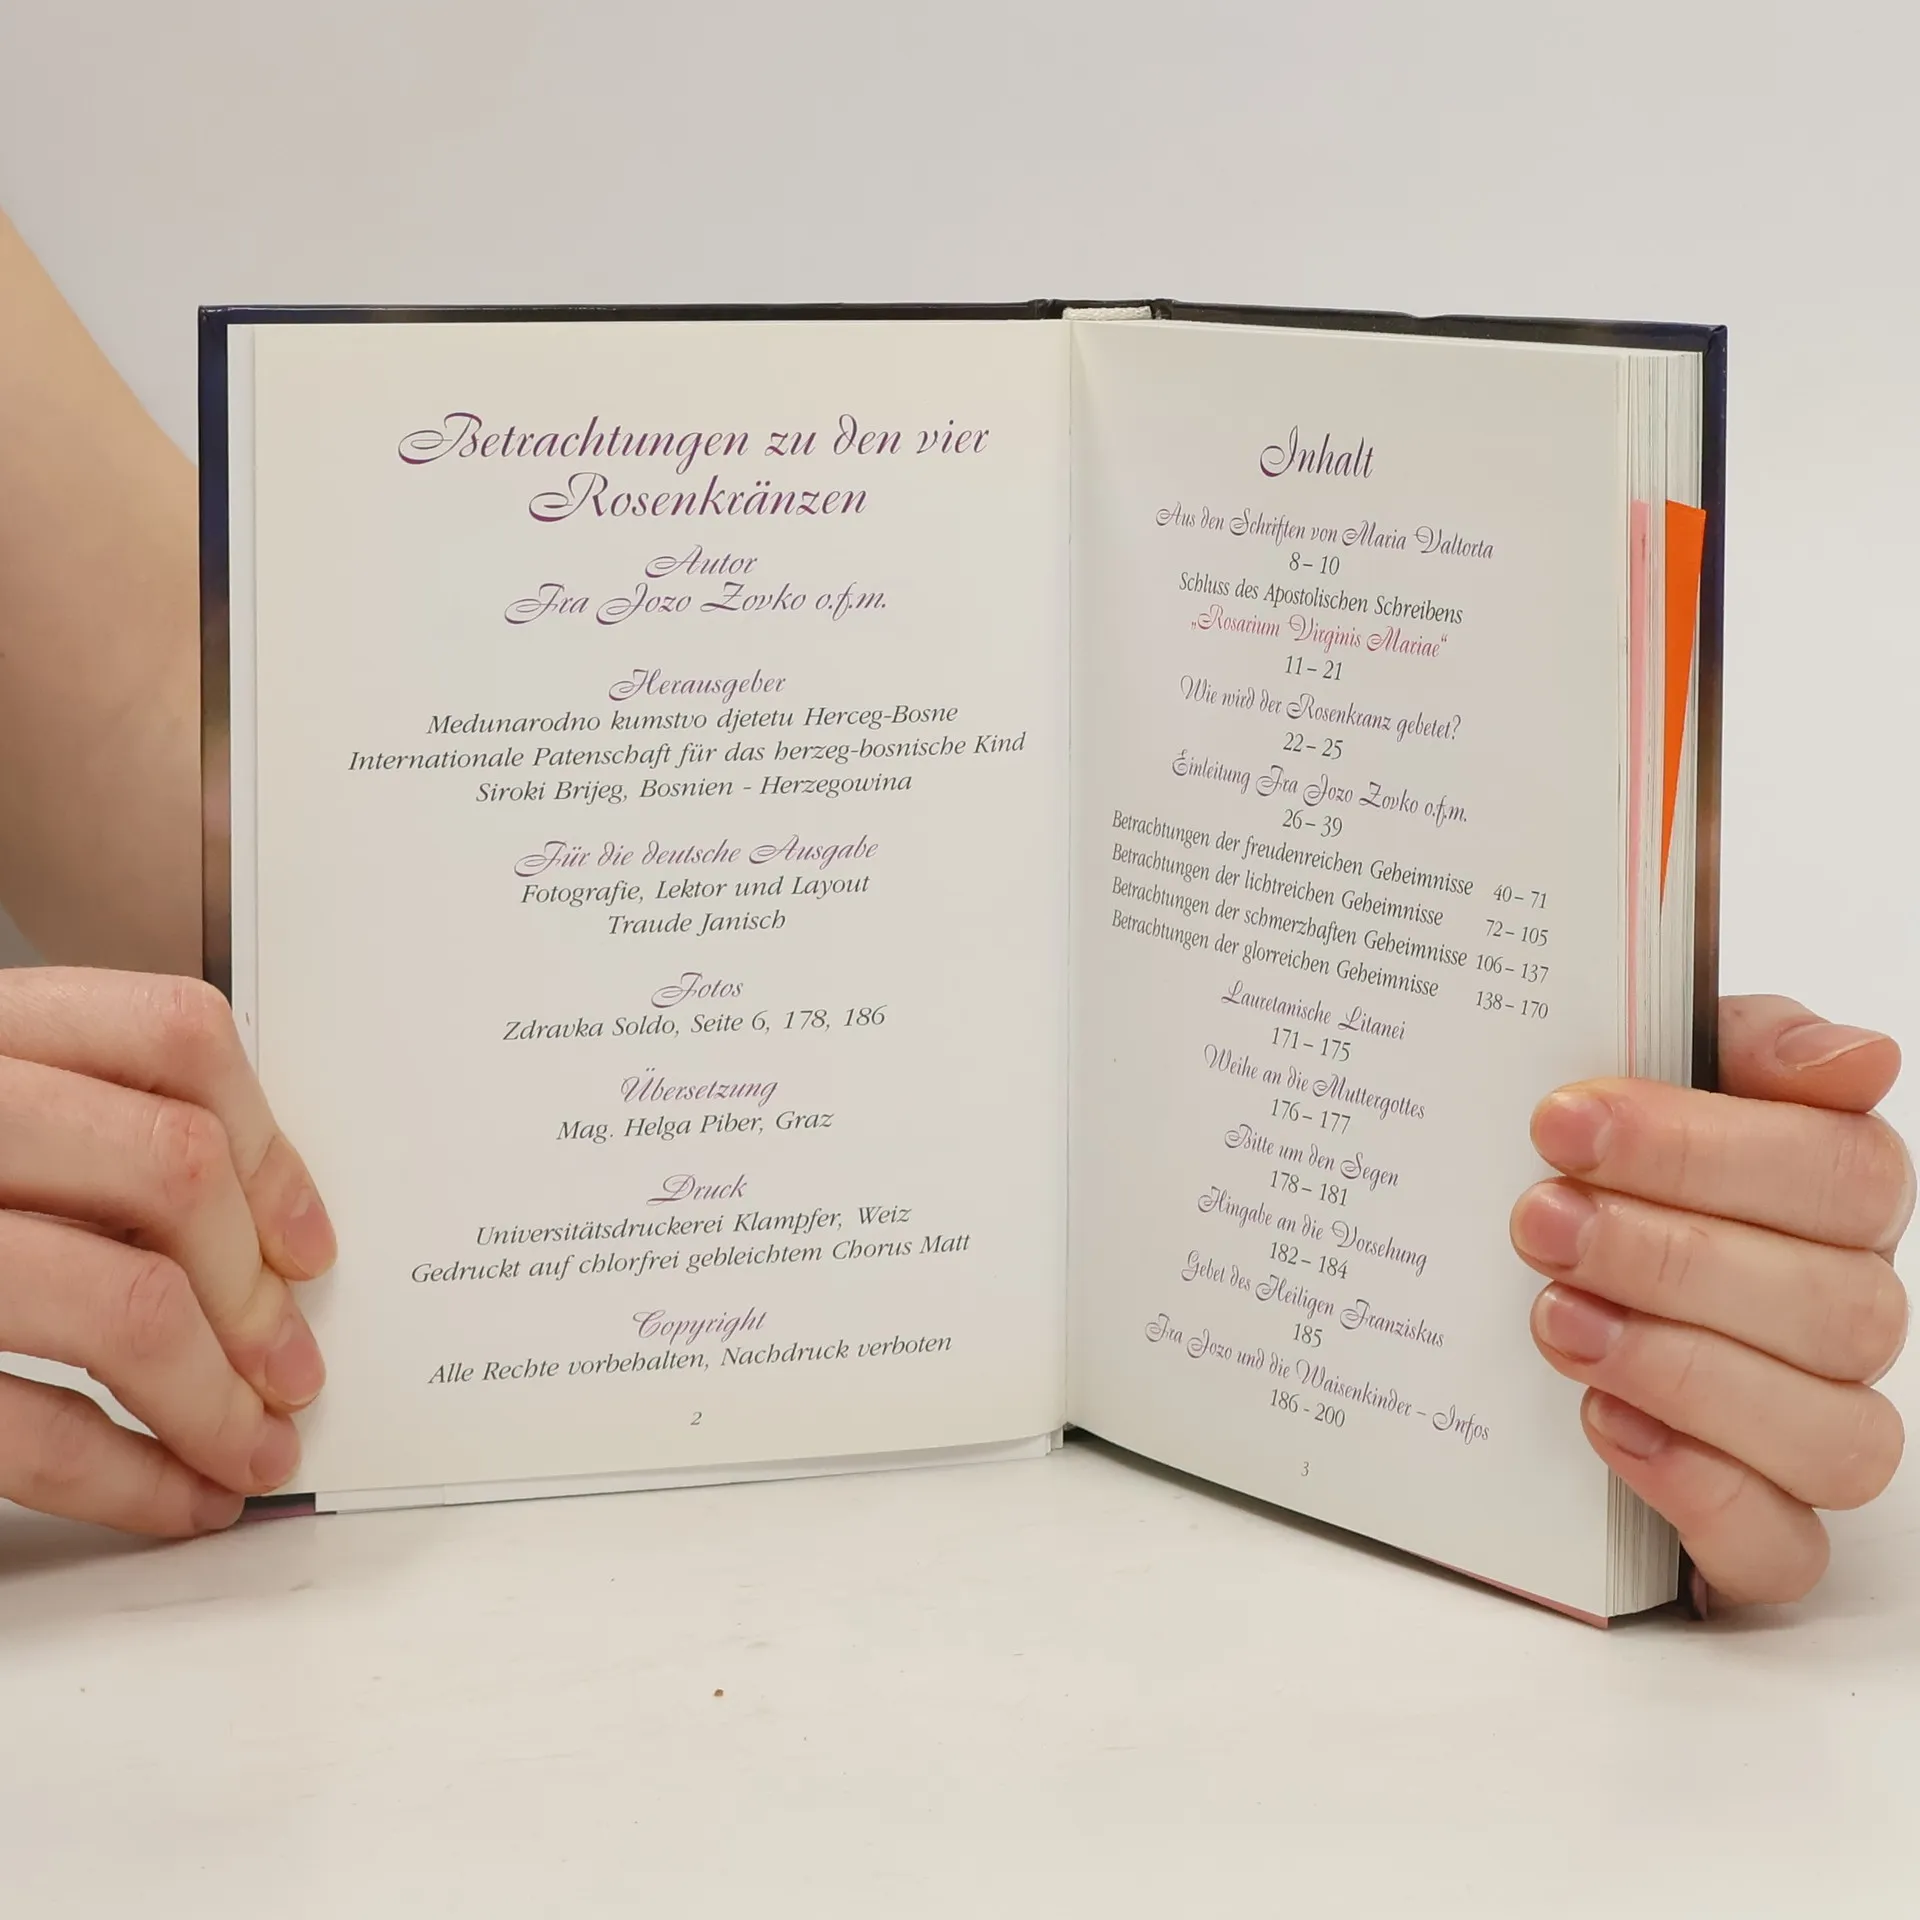 Betrachtungen zu den vier
Rosenkränzen
Autor
Fra Jozo Zovko o.f.m.
Herausgeber
Medunarodno kumstvo djetetu Herceg-Bosne
Internationale Patenschaft für das herzeg-bosnische Kind
Siroki Brijeg, Bosnien - Herzegowina
Für die deutsche Ausgabe
Fotografie, Lektor und Layout
Traude Janisch
Fotos
Zdravka Soldo, Seite 6, 178, 186
Übersetzung
Mag. Helga Piber, Graz
Druck
Universitätsdruckerei Klampfer, Weiz
Gedruckt auf chlorfrei gebleichtem Chorus Matt
Copyright
Alle Rechte vorbehalten, Nachdruck verboten
2
Inhalt
Aus den Schriften von Maria Valtorta
8 – 10
Schluss des Apostolischen Schreibens
„Rosarium Virginis Mariae“
11 – 21
Wie wird der Rosenkranz gebetet?
22 – 25
Einleitung Fra Jozo Zovko o.f.m.
26 – 39
Betrachtungen der freudenreichen Geheimnisse 40 – 71
Betrachtungen der lichtreichen Geheimnisse 72 – 105
Betrachtungen der schmerzhaften Geheimnisse 106 – 137
Betrachtungen der glorreichen Geheimnisse 138 – 170
Lauretanische Litanei
171 – 175
Weihe an die Muttergottes
176 – 177
Bitte um den Segen
178 – 181
Hingabe an die Vorsehung
182 – 184
Gebet des Heiligen Franziskus
185
Fra Jozo und die Waisenkinder – Infos
186 - 200
3